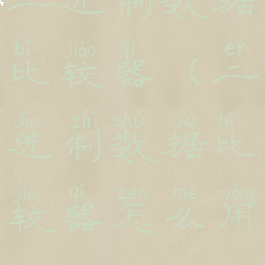 二进制数据
bǐ jiào qì èr
比较器（二
jìn zhì shù jù bǐ
进制数据比
jiào qì zěn me yòng
较器怎么用